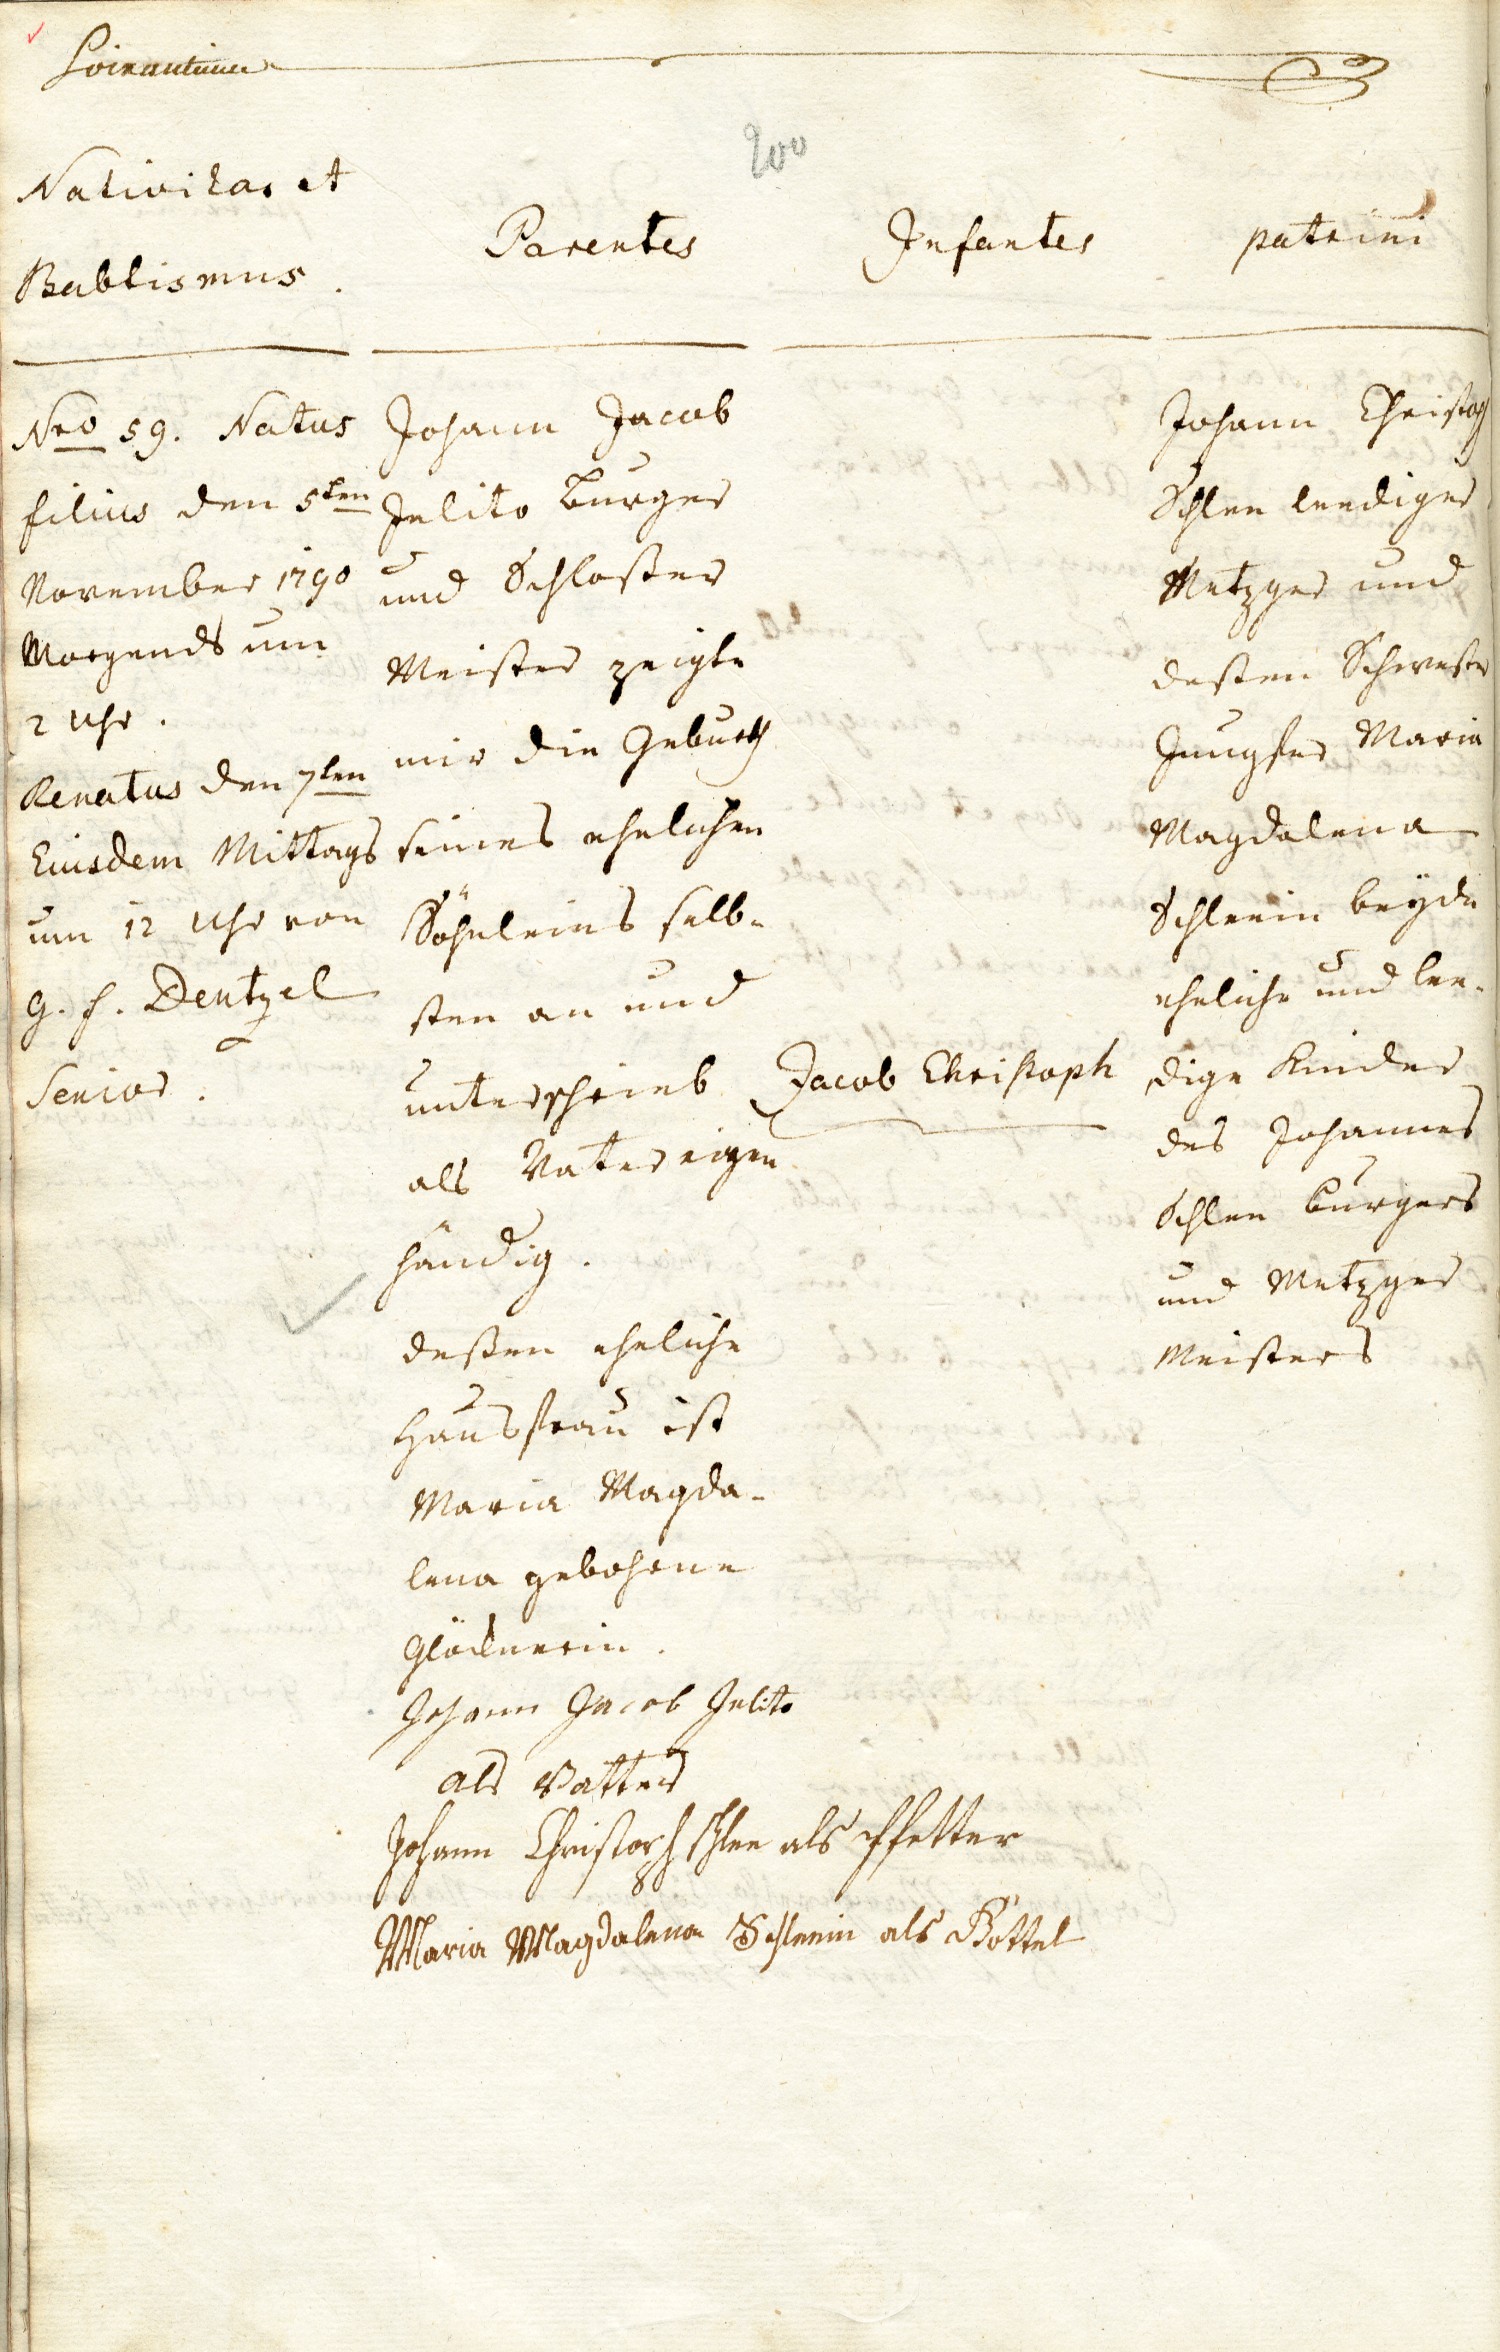 200
Nativitas et
Babtismus.
Parentes
Infantes
patrini
Nro 59. Natus
filius den 5ten
November 1790
Morgends um
2 Uhr.
Renatus den 7ten
Eiusdem Mittags
um 12 Uhr von
G. F. Dentzel
Senior.
Johann Jacob
Jelito Burger
und Schloßer
Meister zeigte
mir die Geburth
seines ehelichen
Söhnleins selb-
sten an und
unterschrieb
als Vater eigen
händig.
deßen eheliche
Haußfrau ist
Maria Magda-
lena gebohrne
Glöcknerin.
Johann Jacob Jelito
als Vatter
Johann Christoph Schlee als Pfetter
Maria Magdalena Schleein als Gottel
Jacob Christoph
Johann Christoph
Schlee leediger
Metzger und
deßen Schwester
Jungfer Maria
Magdalena
Schleein beyde
eheliche und lee-
dige Kinder
des Johannes
Schlee Burgers
und Metzger
Meisters